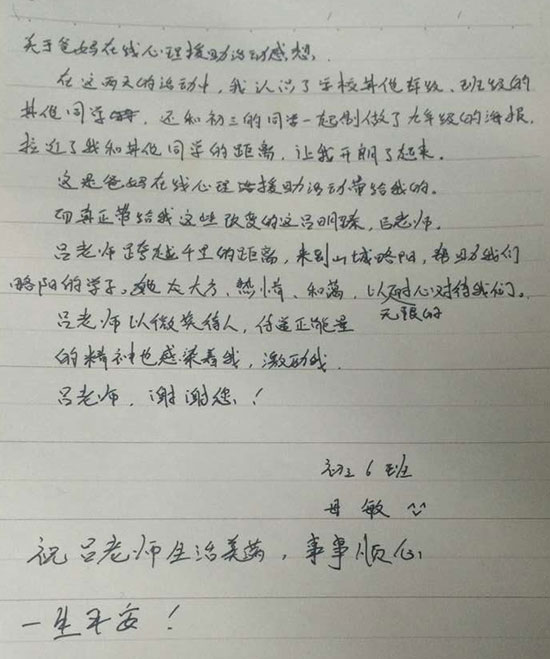 关于爸妈在线心理援助活动感想.
在这两天的活动中，我认识了学校其他年级、班级的
其他同学，还和初三的同学一起制做了九年级的海报.
拉近了我和其他同学的距离，让我开朗了起来.
这是爸妈在线心理援助活动带给我的.
而真正带给我这些改变的这吕明臻，吕老师.
吕老师跨越千里的距离，来到山城略阳，帮助我们
略阳的学子。她大方、热情、和蔼，以无限的耐心对待我们。
吕老师以微笑待人，传递正能量
的精神也感染着我，激励我.
吕老师，谢谢您！
初三6班
母敏
祝吕老师生活美满，事事顺心
一生平安！